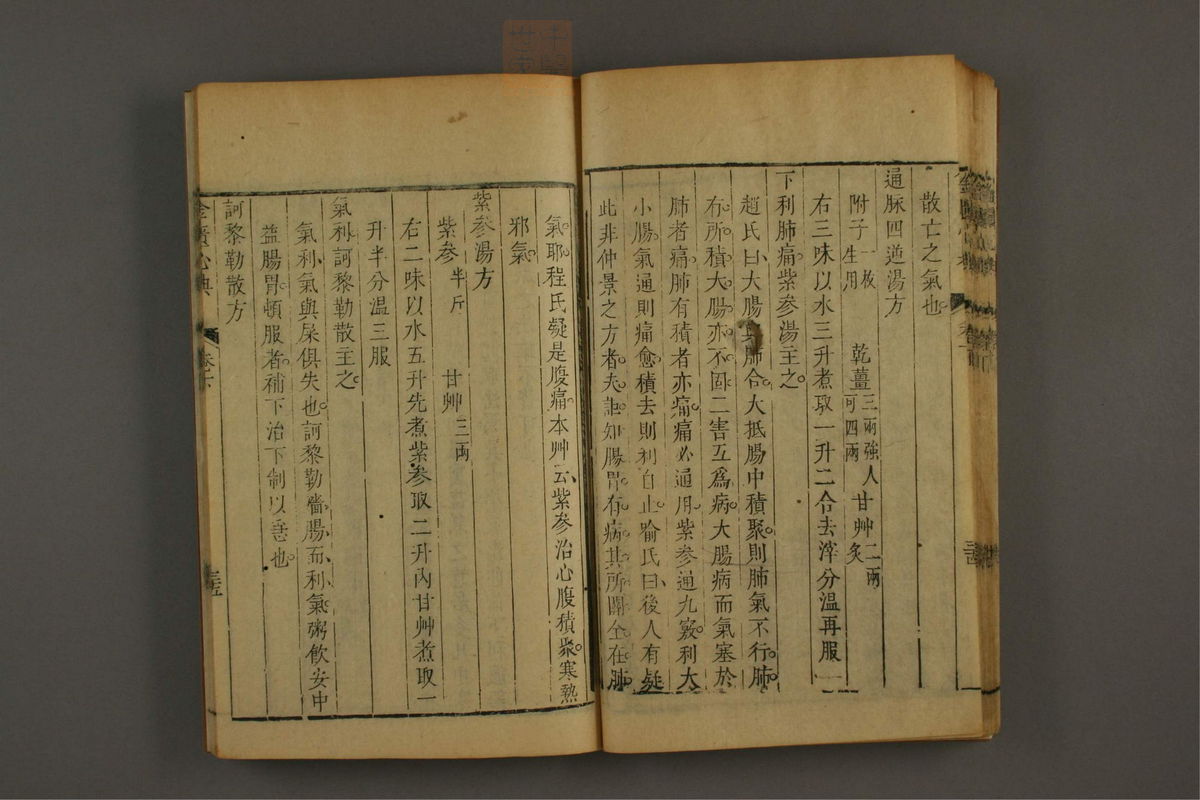 散亡之氣也
通脉四逆湯方
附子一枚生用 乾薑三兩強人可四兩 甘艸二兩炙
右三味以水三升煮取一升二合去滓分溫再服
下利肺痛紫參湯主之
趙氏曰大腸與肺合大抵腸中積聚則肺氣不行肺
有所積大腸亦不固二害互爲病大腸病而氣塞於
肺者痛肺有積者亦痛痛必通用紫參通九竅利大
小腸氣通則痛愈積去則利自止喻氏曰後人有疑
此非仲景之方者夫詎知腸胃有病其所關全在肺
氣耶程氏疑是腹痛本艸云紫參治心腹積聚寒熱
邪氣
紫參湯方
紫參半斤 甘艸三兩
右二味以水五升先煮紫參取二升內甘艸煮取一
升半分溫三服
氣利訶黎勒散主之
氣利氣與屎俱失也訶黎勒濇腸而利氣粥飲安中
益腸胃頓服者補下治下制以急也
訶黎勒散方
金匱心典 卷下 三五